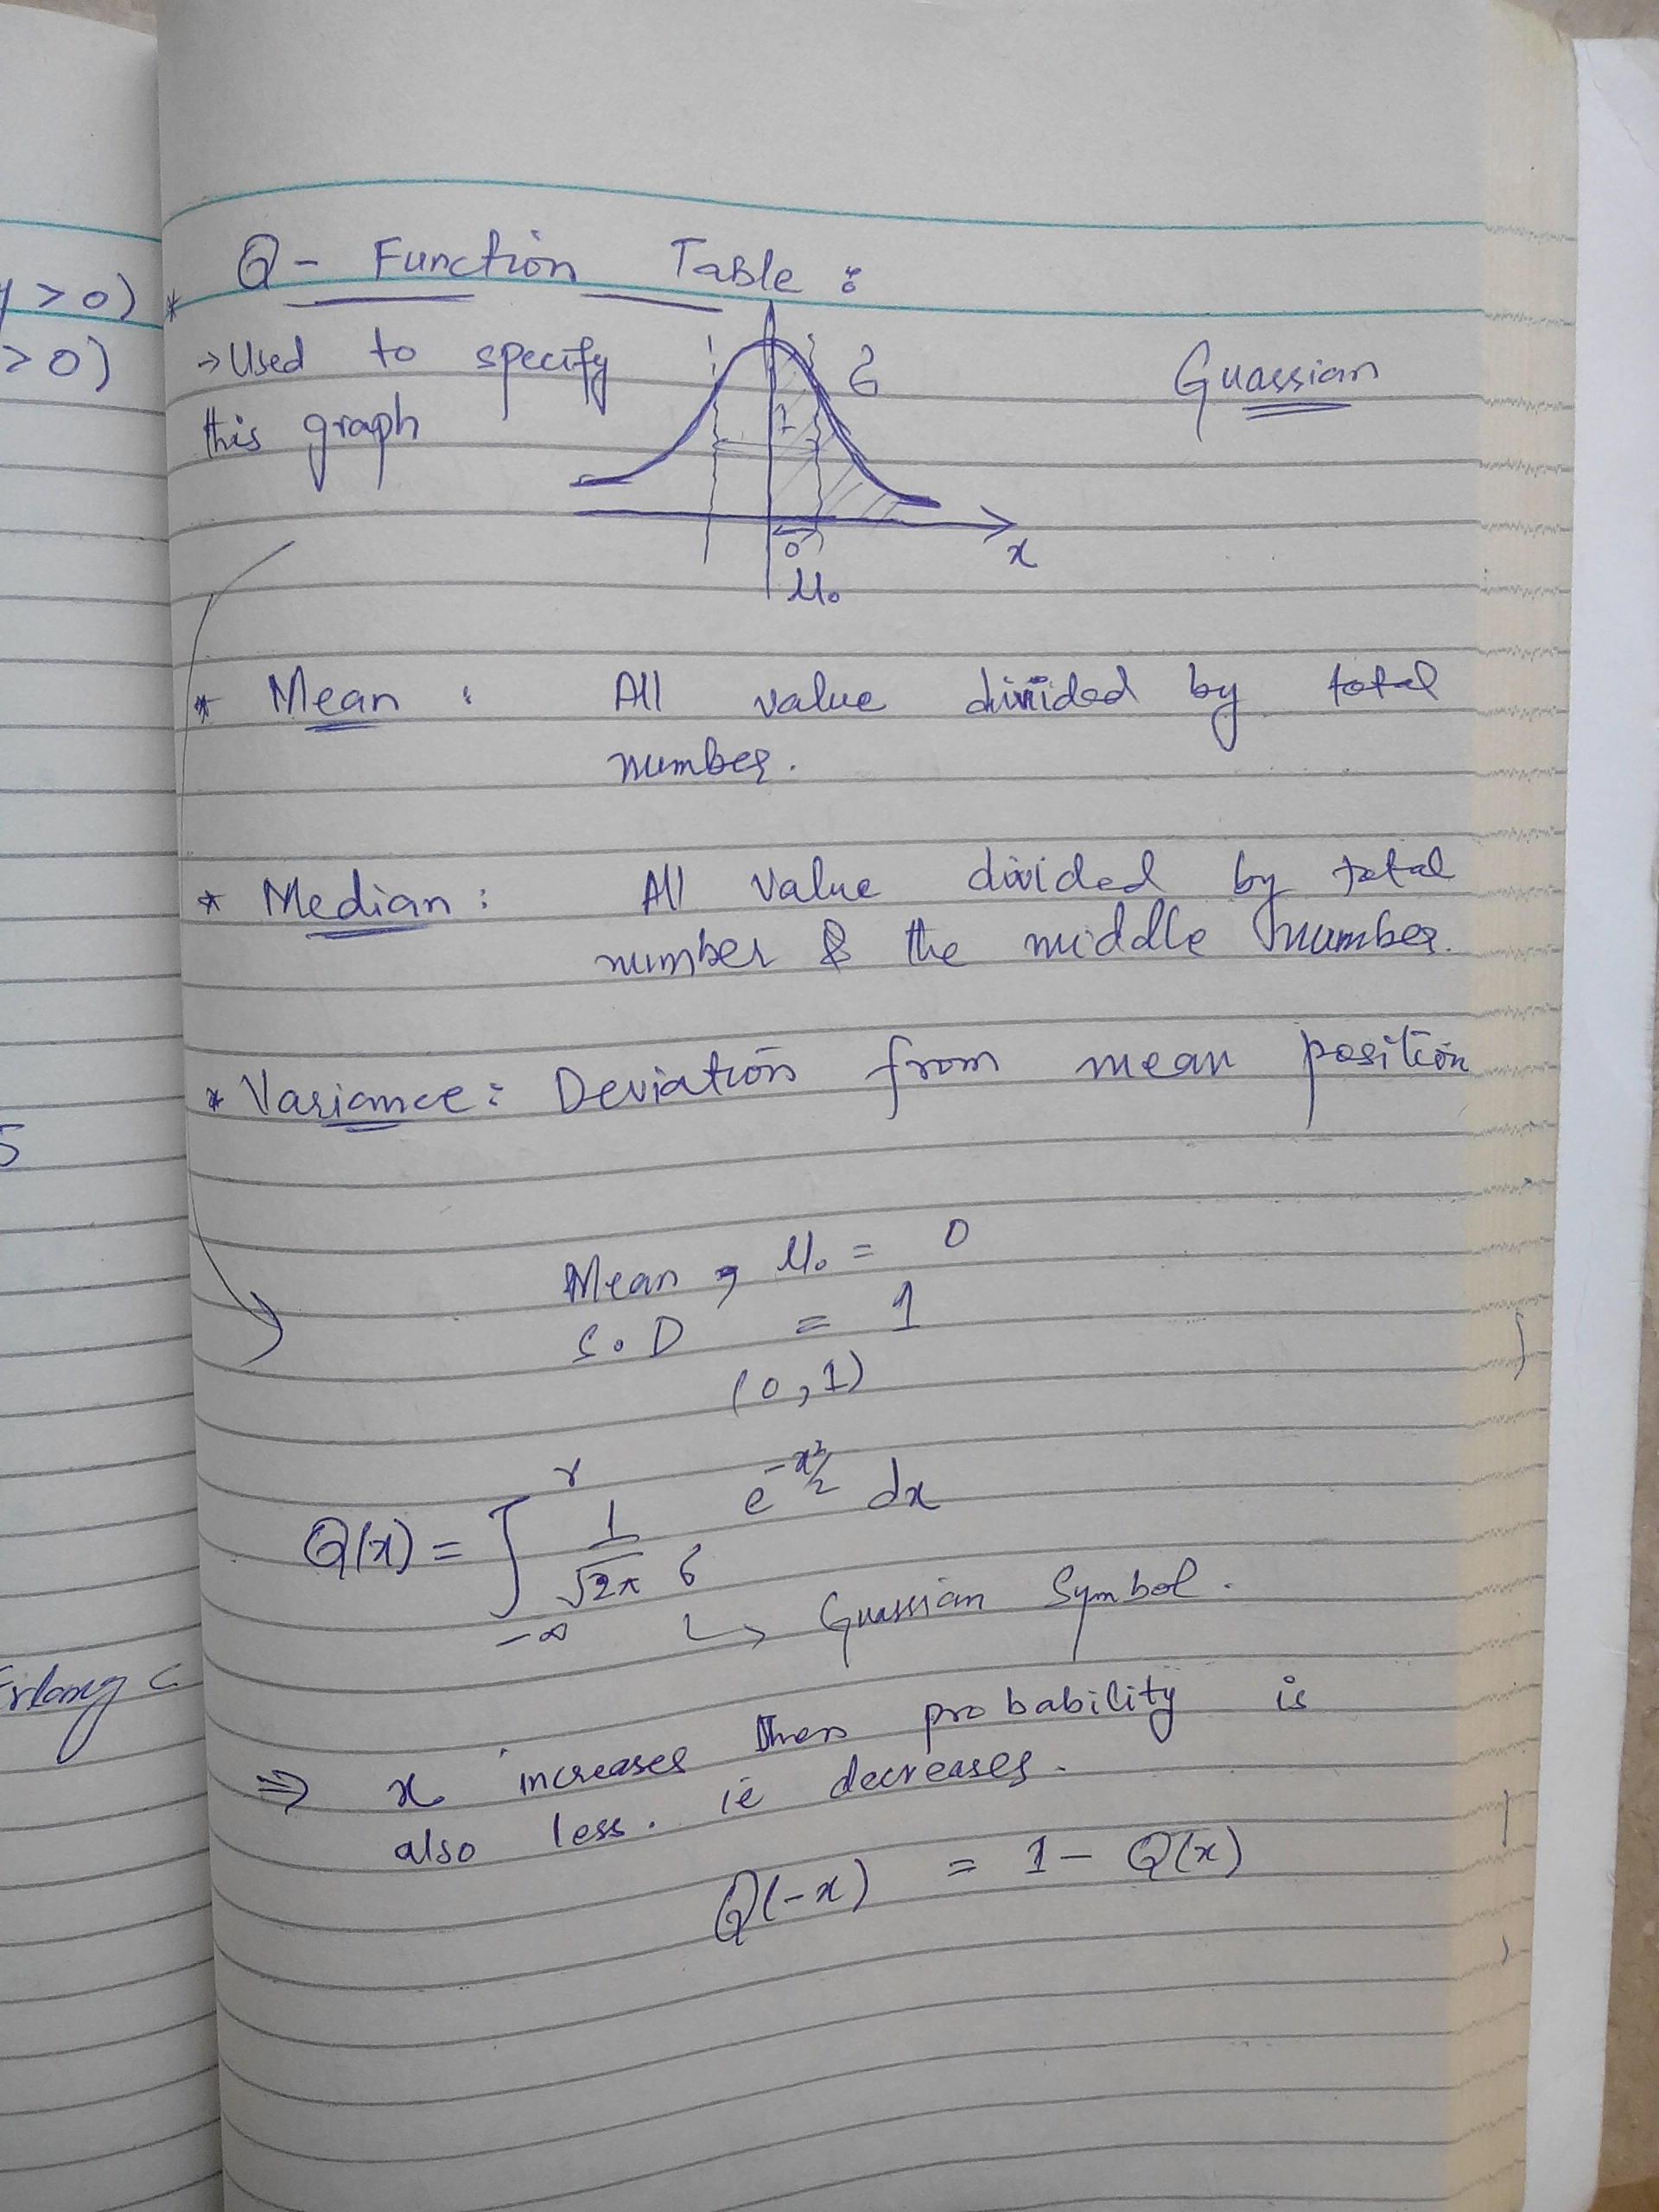 y > 0)
> 0)
5
Erlang C
* Q - Function Table :
→ Used to specify
this graph
Guassian
σ
1
σ
x
μ₀
* Mean : All value divided by total
number.
* Median : All value divided by total
number & the middle number.
* Variance : Deviation from mean position
Mean , μ₀ = 0
S.D = 1
(0,1)
Q(x) = ∫_{-∞}^{r} 1/(√2π σ) e^{-x²/2} dx
↳ Guassian Symbol.
⇒ x increases then probability is
also less. ie decreases.
Q(-x) = 1 - Q(x)